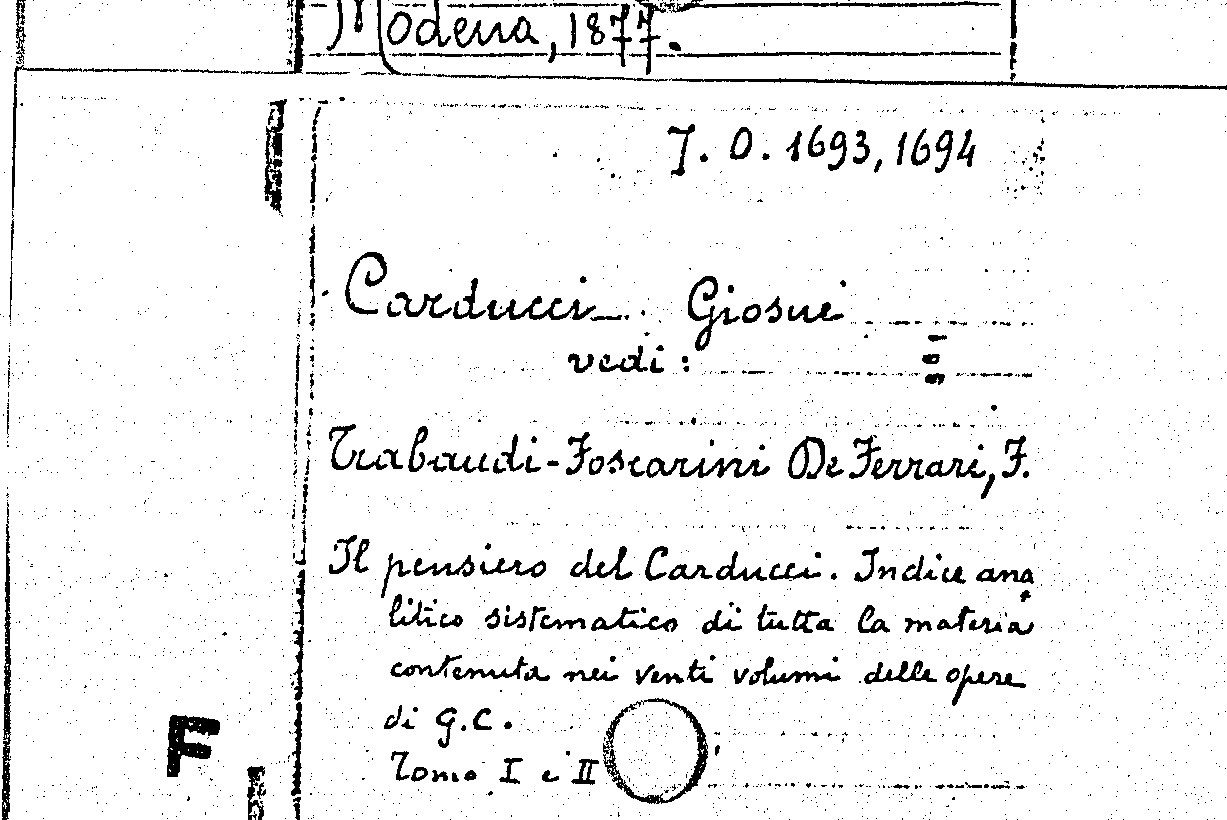 Modena, 1877.
7. O. 1693, 1694
Carducci Giosuè
vedi :
Trabaudi-Foscarini De Ferrari, F.
Il pensiero del Carducci. Indice ana
litico sistematico di tutta la materia
contenuta nei venti volumi delle opere
di G.C.
Tomo I e II
F